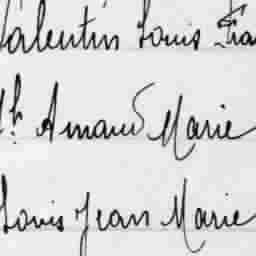 Valentin Louis Fra
h. Amand Marie
Louis Jean Marie